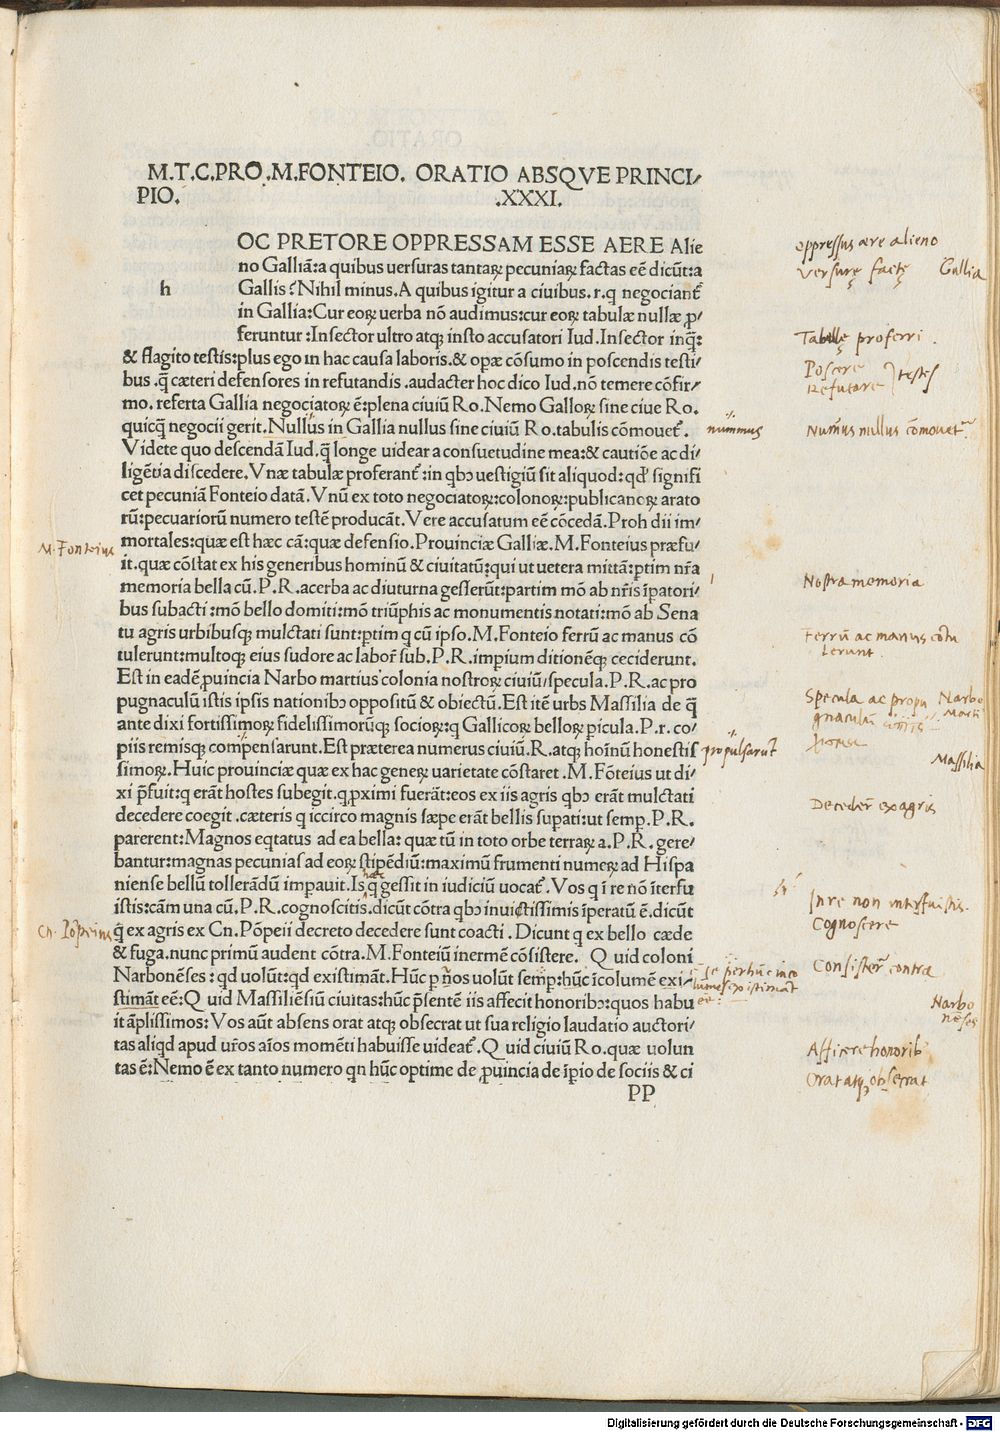 M.T.C.PRO.M.FONTEIO. ORATIO ABSQVE PRINCI⸗
PIO. .XXXI.
OC PRETORE OPPRESSAM ESSE AERE Alie
no Galliā:a quibus uersuras tantaꝝ pecuniaꝝ factas eē dicūt:a
h Gallis? Nihil minus. A quibus igitur a ciuibus. r. q negociant̄
in Gallia: Cur eoꝝ uerba nō audimus:cur eoꝝ tabulæ nullæ ꝓ⸗
feruntur: Insector ultro atqꝫ insto accusatori Iud. Insector inq̄:
& flagito testis:plus ego in hac causa laboris.& opæ cōsumo in poscendis testi⸗
bus .q̄ cæteri defensores in refutandis .audacter hoc dico Iud. nō temere cōfir⸗
mo. referta Gallia negociatoꝝ ē:plena ciuiū Ro. Nemo Galloꝝ sine ciue Ro.
quicq̄ negocii gerit. Nullus in Gallia nullus sine ciuiū Ro. tabulis cōmouet̄.
Videte quo descendā Iud. q̄ longe uidear a consuetudine mea:& cautiōe ac di⸗
ligētia discedere. Vnæ tabulæ proferant̄:in qbꝫ uestigiū sit aliquod:qd̓ signifi
cet pecuniā Fonteio datā. Vnū ex toto negociatoꝝ:colonoꝝ:publicanoꝝ arato
rū:pecuariorū numero testē producāt. Vere accusatum eē cōcedā. Proh dii im⸗
mortales:quæ est hæc cā:quæ defensio. Prouinciæ Galliæ. M. Fonteius præfu⸗
it. quæ cōstat ex his generibus hominū & ciuitatū:qui ut uetera mittā:ptim nr̄a
memoria bella cū. P.R. acerba ac diuturna gesserūt:partim mō ab nr̄is īpatori⸗
bus subacti :mō bello domiti:mō triūphis ac monumentis notati:mō ab Sena
tu agris urbibusqꝫ mulctati sunt:ptim q cū ipso. M. Fonteio ferrū ac manus cō
tulerunt:multoqꝫ eius sudore ac labor̄ sub. P.R. imꝑium ditionēqꝫ ceciderunt.
Est in eadē ꝓuincia Narbo martius colonia nostroꝝ ciuiū/specula. P.R. ac pro
pugnaculū istis ipsis nationibꝫ oppositū & obiectū. Est itē urbs Massilia de q̄
ante dixi fortissimoꝝ fidelissimorūqꝫ socioꝝ:q Gallicoꝝ belloꝝ picula. P.r. co⸗
piis remisqꝫ compensarunt. Est præterea numerus ciuiū. R. atqꝫ hoīnū honestis
simoꝝ. Huic prouinciæ quæ ex hac generꝝ uarietate cōstaret .M. Fōteius ut di⸗
xi p̄fuit:q erāt hostes subegit. q ꝓximi fuerāt:eos ex iis agris qbꝫ erāt mulctati
decedere coegit .cæteris q iccirco magnis sæpe erāt bellis supati:ut semp. P.R.
parerent: Magnos eqtatus ad ea bella: quæ tū in toto orbe terraꝝ a. P.R. gere⸗
bantur:magnas pecunias ad eoꝝ stipēdiū:maximū frumenti numeꝝ ad Hispa
niense bellū tollerādū impauit. Is q̄ gessit in iudiciū uocat̄. Vos q ī re nō īterfu
istis:cām una cū. P.R. cognoscitis. dicūt cōtra qbꝫ inuictissimis īperatū ē. dicūt
q̄ ex agris ex Cn. Pōpeii decreto decedere sunt coacti . Dicunt q ex bello cæde
& fuga. nunc primū audent cōtra. M. Fonteiū inermē cōsistere. Q uid coloni
Narbonēses: qd uolūt:qd existimāt. Hūc p nr̄os uolūt semp:hūc īcolumē exi⸗
stimāt eē: Q uid Massiliēsiū ciuitas:hūc p̄sentē iis affecit honoribꝫ:quos habu
it āplissimos: Vos aūt absens orat atqꝫ obsecrat ut sua religio laudatio auctori⸗
tas aliqd apud ur̄os aīos momēti habuisse uideat̄. Q uid ciuiū Ro. quæ uolun
tas ē: Nemo ē ex tanto numero qn hūc optime de ꝓuincia de īpio de sociis & ci
PP
M. Fonteius
Cn. Pōpeius
hæc
nummus
propulsarūt
se per hūc inco
lumes existimāt
eē:
oppressus ære alieno
versurę factę Gallia
Tabulę proferri .
Poscere
Refutare } testes
Numus nullus cōmouet̄
Nostra memoria
Ferrū ac manus cōtu
lerunt
Specula ac propu
gnaculū
Narbo
Marti⁹
Massilia
Decederē ex agris
In re non interfuistis.
Cognoscere
Consisterē contra
Narbo
nēses
Afficere honorib⁹
Orat atqꝫ obsecrat
Digitalisierung gefördert durch die Deutsche Forschungsgemeinschaft - DFG